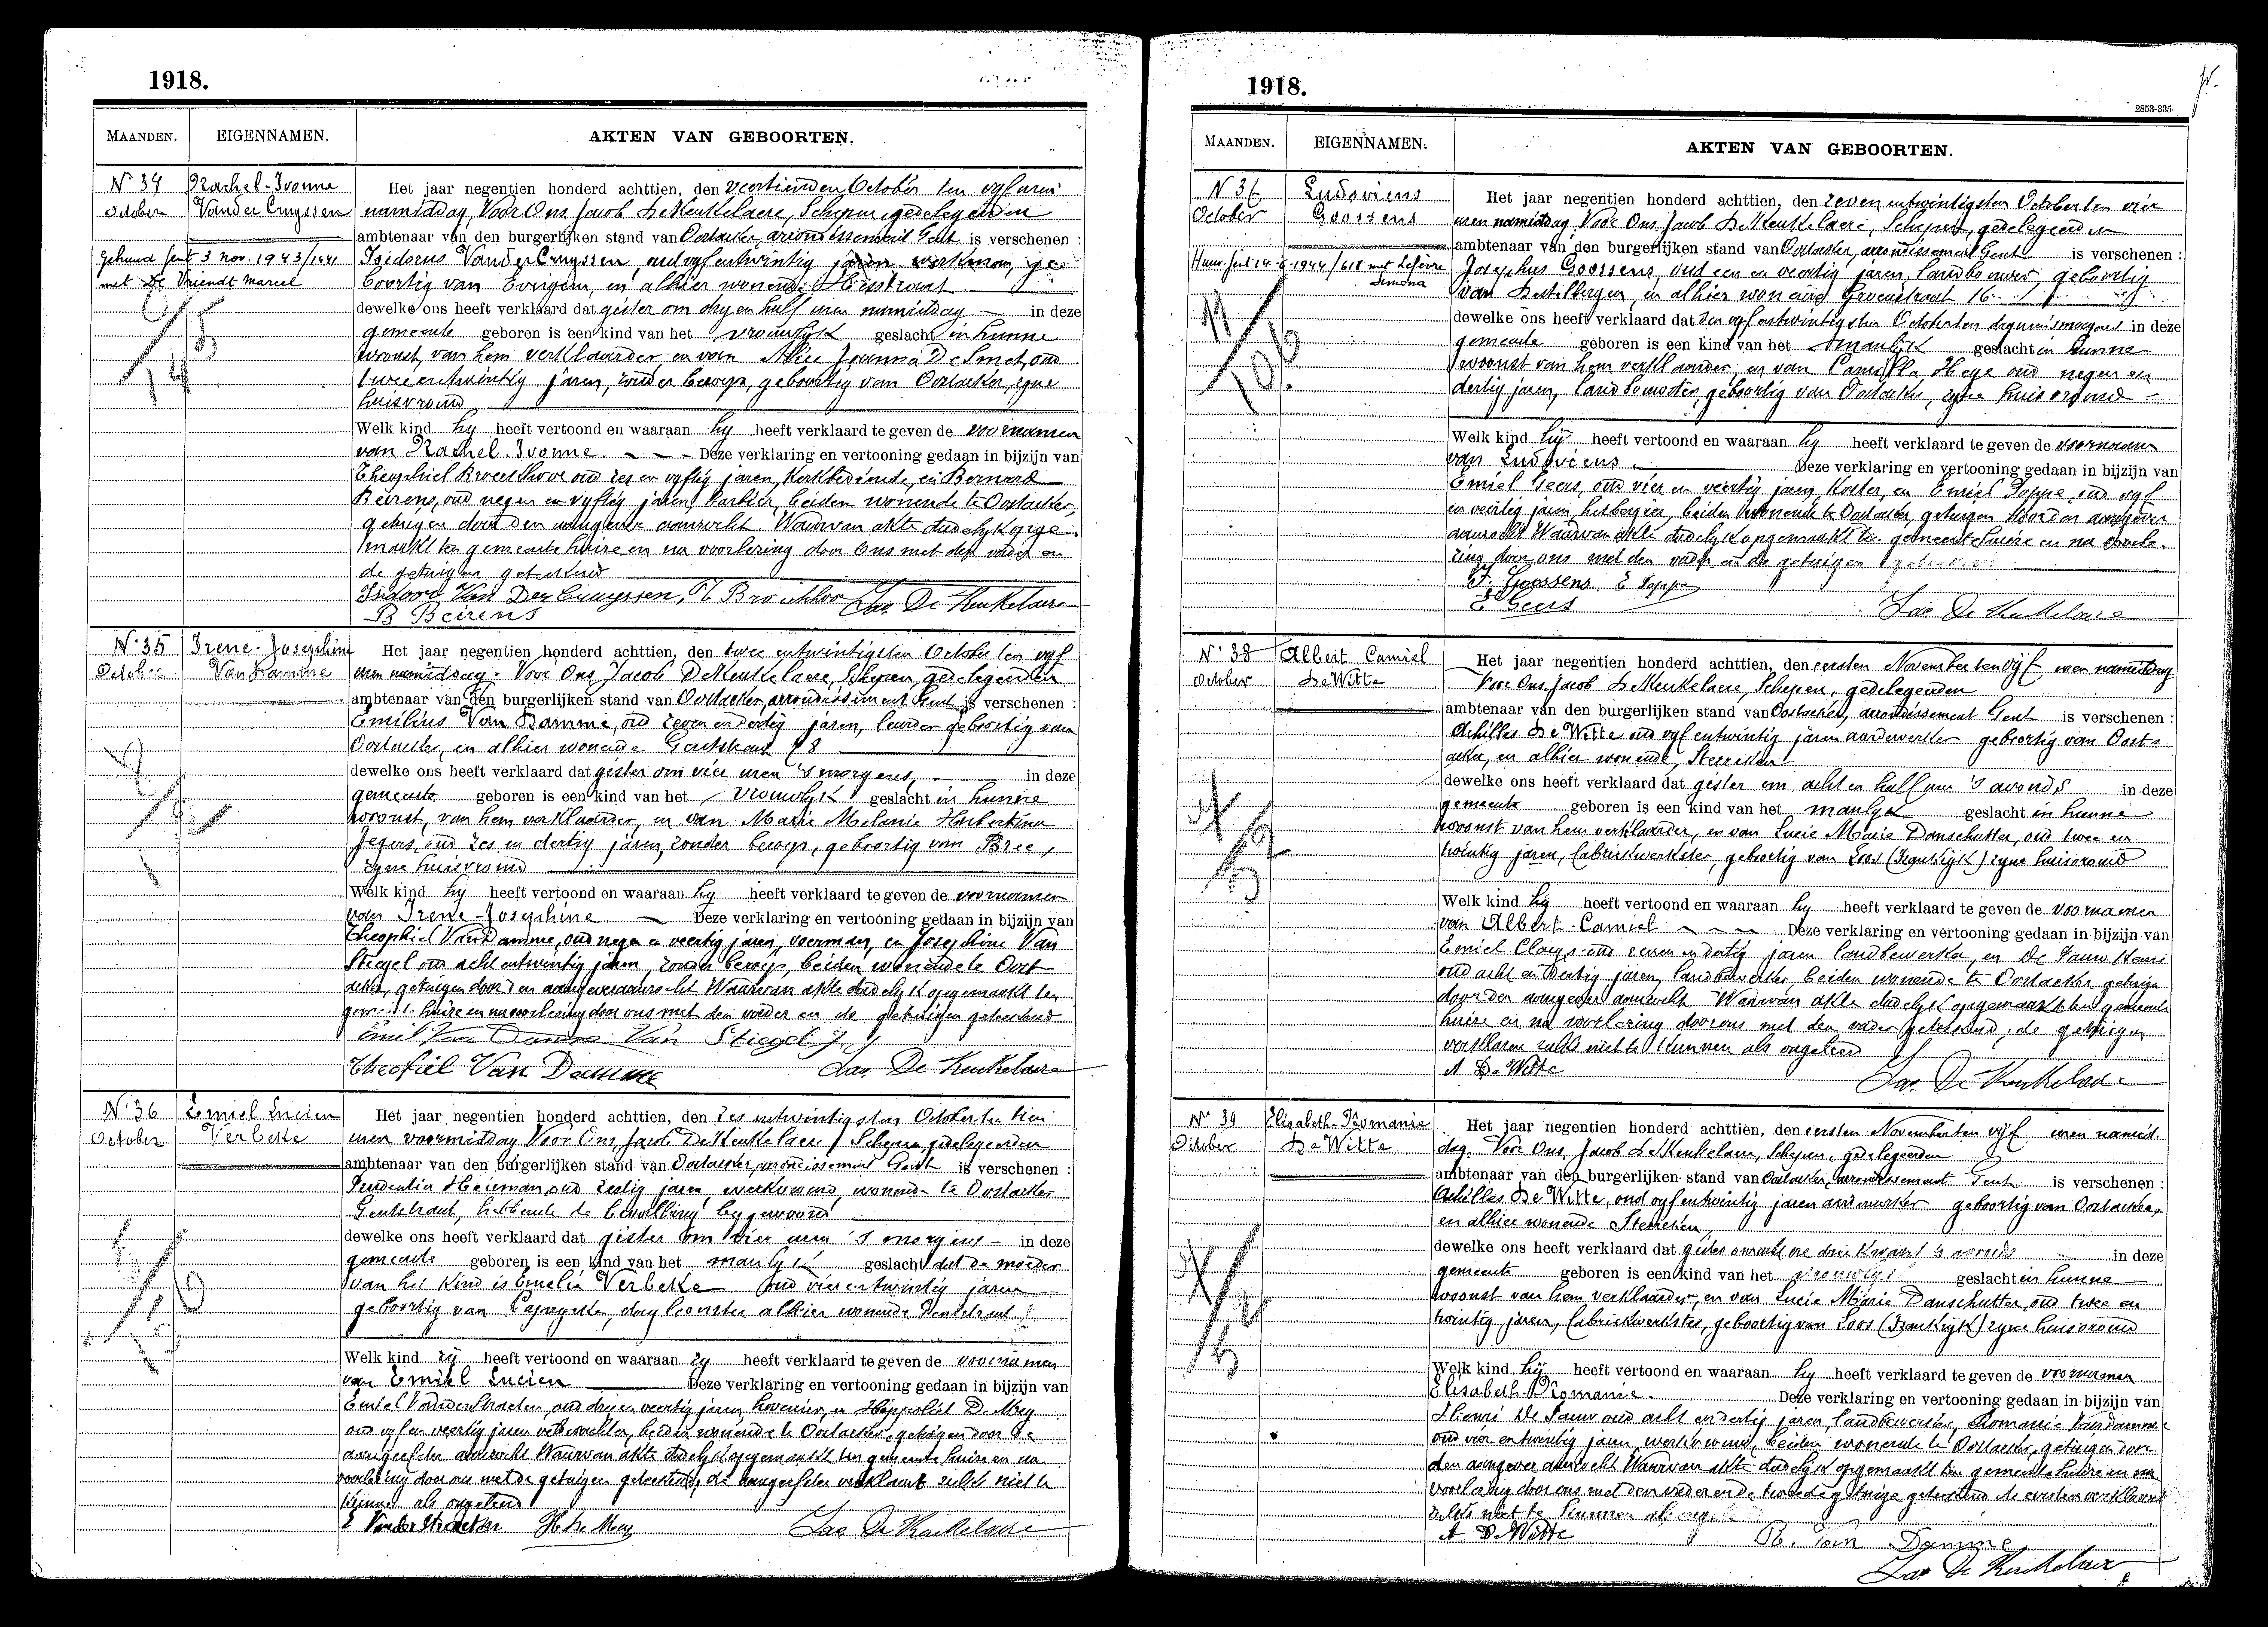 1918.
MAANDEN. EIGENNAMEN. AKTEN VAN GEBOORTEN.
N° 34 Rachel-Ivonne
October Vander Cruyssen
gehuwd Gent 3 nov. 1943
met De Vriendt Marcel
Het jaar negentien honderd achttien, den veertienden October ten vyf uren
namiddag, Voor Ons Jacob De Keukelaere, Schepen gedelegeerden
ambtenaar van den burgerlijken stand van Oostacker, arrondissement Gent is verschenen :
Isidorus Vander Cruyssen, oud vyfentwintig jaren werkman, ge
boortig van Evergem, en alhier wonende
dewelke ons heeft verklaard dat gister om dry en half uren namiddag in deze
gemeente geboren is een kind van het vrouwlyk geslacht in hunne
woonst, van hem verklaarder en van Alice Joanna De Smet, oud
twee entwintig jaren, zonder beroep, geboortig van Oostacker, zyne
huisvrouw
Welk kind hy heeft vertoond en waaraan hy heeft verklaard te geven de voornamen
van Rachel Ivonne. Deze verklaring en vertooning gedaan in bijzijn van
Theophiel oud zes en vyftig jaren, Kerkbediende, en Bernard
Beirens, oud negen en vyftig jaren, barbier, beiden wonende te Oostacker,
getuigen door den aangever aanzocht. Waarvan akte dadelyk opge-
maakt ten gemeente huize en na voorlezing door Ons met den vader en
de getuigen geteekend
Isidoor Van Der Cruyssen, Jac. De Keukelaere
B Beirens
N° 35 Irene-Josephine
October Van Damme
Het jaar negentien honderd achttien, den twee entwintigsten October ten vyf
uren namiddag. Voor Ons, Jacob De Keukelaere, Schepen, gedelegeerden
ambtenaar van den burgerlijken stand van Oostacker, arrondissement Gent is verschenen :
Emilius Van Damme, oud zeven en dertig jaren, geboortig van
Oostacker, en alhier wonende Gentstraat 78
dewelke ons heeft verklaard dat gister om vier uren 's morgens, in deze
gemeente geboren is een kind van het vrouwlyk geslacht in hunne
woonst, van hem verklaarder, en van Marie Melanie Hubertina
Jegers, oud zes en dertig jaren, zonder beroep, geboortig van Bree,
zyne huisvrouw
Welk kind hy heeft vertoond en waaraan hy heeft verklaard te geven de voornamen
van Irene-Josephine. Deze verklaring en vertooning gedaan in bijzijn van
Theophiel Van Damme, oud negen en veertig jaren, voerman, en Josephine Van
Stiegel oud acht entwintig jaren, zonder beroep, beiden wonende te Oost-
acker, getuigen door den aangever aanzocht Waarvan akte dadelyk opgemaakt ten
gemeente huize en na voorlezing door ons met den vader en de getuigen geteekend
Emil Van Damme Van Stiegel J
Theofiel Van Damme Jac. De Keukelaere
N° 36 Emiel Lucien
October Verbeke
Het jaar negentien honderd achttien, den zes entwintigsten October ten tien
uren voormiddag Voor Ons, Jacob De Keukelaere, Schepen, gedelegeerden
ambtenaar van den burgerlijken stand van Oostacker, arrondissement Gent is verschenen :
Prudentia Heiman, oud zestig jaren, werkvrouw, wonende te Oostacker
Gentstraat, hebbende de bevalling bygewoond
dewelke ons heeft verklaard dat gister om vier uren 's morgens in deze
gemeente geboren is een kind van het manlyk geslacht dat de moeder
van het kind is Emelia Verbeke oud vierentwintig jaren
geboortig van alhier wonende Gentstraat
Welk kind zij heeft vertoond en waaraan zy heeft verklaard te geven de voornamen
van Emiel Lucien Deze verklaring en vertooning gedaan in bijzijn van
Emiel Vander Straeten, oud dry en veertig jaren, hovenier, en Hippoliet De Mey
oud vyf en veertig jaren beiden wonende te Oostacker, getuigen door de
aangeefster aanzocht Waarvan akte dadelyk opgemaakt ten gemeente huize en na
voorlezing door ons met de getuigen geteekend, de aangeefster verklaart zulks niet te
kunnen als ongeleerd
E Vander Straeten H De Mey Jac De Keukelaere
1918.
2853-335
MAANDEN. EIGENNAMEN. AKTEN VAN GEBOORTEN.
N 37 Ludovicus
October Goossens
Huw. Gent 14-6-1944/618 met Lefèvre
Simona
Het jaar negentien honderd achttien, den zeven entwintigsten October ten vier
uren namiddag Voor Ons, Jacob De Keukelaere, Schepen, gedelegeerden
ambtenaar van den burgerlijken stand van Oostacker, arrondissement Gent is verschenen :
Josephus Goossens, oud een en veertig jaren, landbouwer, geboortig
van Destelbergen, en alhier wonende Groenstraat 16.
dewelke ons heeft verklaard dat den vyf entwintigsten October ten 's morgens in deze
gemeente geboren is een kind van het manlyk geslacht in hunne
woonst van hem verklaarder en van Camilla Heye oud negen en
dertig jaren, landbouwster, geboortig van Oostacker, zyne huisvrouw
Welk kind hy heeft vertoond en waaraan hy heeft verklaard te geven de voornamen
van Ludovicus. Deze verklaring en vertooning gedaan in bijzijn van
Emiel Geers, oud vier en veertig jaren, Koster, en Emiel Poppe, oud vyf
en veertig jaren, herbergier, beiden wonende te Oostacker, getuigen door den aangever
aanzocht Waarvan akte dadelyk opgemaakt ten gemeente huize en na voorle-
zing door ons met den vader en de getuigen geteekend
J. Goossens E Poppe
E Geers Jac De Keukelaere
N° 38 Albert Camiel
October De Witte
Het jaar negentien honderd achttien, den eersten November ten vijf uren namiddag
Voor Ons, Jacob De Keukelaere, Schepen, gedelegeerden
ambtenaar van den burgerlijken stand van Oostacker, arrondissement Gent is verschenen :
Achilles De Witte oud vyf entwintig jaren aardewerker geboortig van Oost-
acker, en alhier wonende, Sterreken
dewelke ons heeft verklaard dat gister om acht en half uur 's avonds in deze
gemeente geboren is een kind van het manlyk geslacht in hunne
woonst van hem verklaarder, en van Lucie Marie Danschutter, oud twee en
twintig jaren, fabriekwerkster, geboortig van Loos (Frankrijk) zyne huisvrouw
Welk kind hij heeft vertoond en waaraan hy heeft verklaard te geven de voornamen
van Albert-Camiel Deze verklaring en vertooning gedaan in bijzijn van
Emiel Claeys oud zeven en dertig jaren landbewerker, en De Pauw Henri
oud acht en dertig jaren, landbewerker, beiden wonende te Oostacker, getuigen
door den aangever aanzocht Waarvan akte dadelyk opgemaakt ten gemeente
huize en na voorlezing door ons met den vader geteekend, de getuigen
verklaren zulks niet te kunnen als ongeleerd
A De Witte Jac. De Keukelaere
N° 39 Elisabeth-Romanie
October De Witte
Het jaar negentien honderd achttien, den eersten November ten vijf uren namid-
dag. Voor Ons, Jacob De Keukelaere, Schepen, gedelegeerden
ambtenaar van den burgerlijken stand van Oostacker, arrondissement Gent is verschenen :
Achilles De Witte, oud vyf entwintig jaren aardewerker geboortig van Oostacker,
en alhier wonende Sterreken,
dewelke ons heeft verklaard dat gister om acht ure drie kwaart 's avonds in deze
gemeente geboren is een kind van het vrouwlyk geslacht in hunne
woonst van hem verklaarder, en van Lucie Marie Danschutter, oud twee en
twintig jaren, fabriekwerkster, geboortig van Loos (Frankrijk) zyne huisvrouw
Welk kind hij heeft vertoond en waaraan hy heeft verklaard te geven de voornamen
Elisabeth-Romanie. Deze verklaring en vertooning gedaan in bijzijn van
Henri De Pauw oud acht en dertig jaren, landbewerker, Romanie Van Damme
oud vier entwintig jaren, werkvrouw, beiden wonende te Oostacker, getuigen door
den aangever aanzocht Waarvan akte dadelyk opgemaakt ten gemeente huize en na
voorlezing door ons met den vader en de tweede getuige geteekend de eersten verklaart
zulks niet te kunnen als
A De Witte R. Van Damme
Jac De Keukelaere